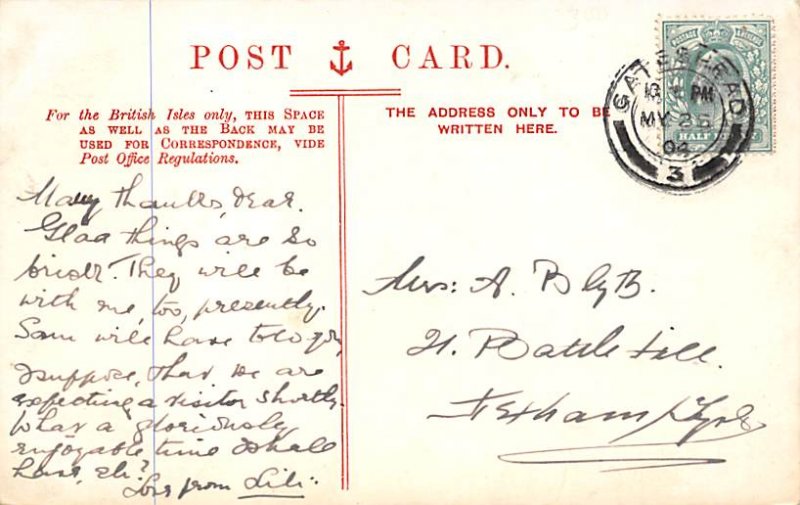 POST CARD.
For the British Isles only, THIS SPACE
AS WELL AS THE BACK MAY BE
USED FOR CORRESPONDENCE, VIDE
Post Office Regulations.
THE ADDRESS ONLY TO BE
WRITTEN HERE.
POSTAGE & REVENUE
HALF
GATESHEAD
PM
MY 26
04
3
Many thanks, dear.
Glad things are so
brisk. They will be
with me, too, presently.
Sam will have told you,
I suppose, that we are
expecting a visitor shortly.
What a gloriously
enjoyable time I shall
have, eh?
Love from Lili:
Mrs: A. Blyth.
21. Battle Hill.
Hexham/Tyne